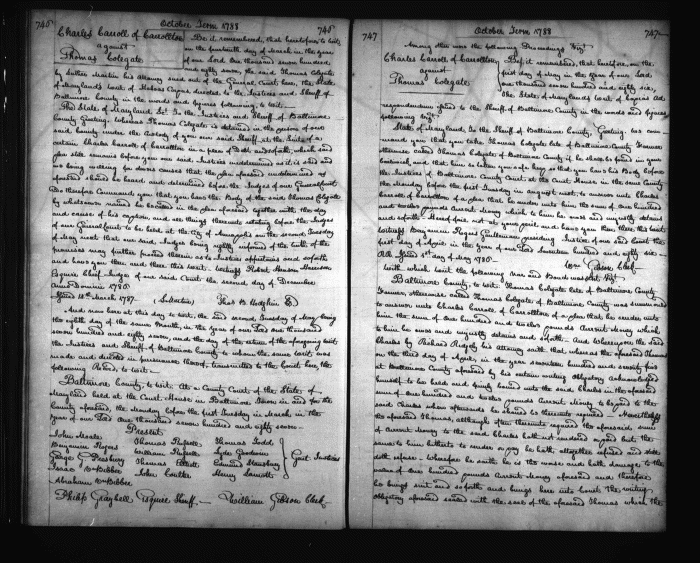 746 October Term 1788 746
Charles Carroll of Carrollton
against
Thomas Colegate
Be it remembered, that heretofore to wit,
on the fourteenth day of March in the year
of our Lord one thousand seven hundred
and eighty seven, the said Thomas Colegate
by Luther Martin his Attorney sued out of the General Court here, the State
of Maryland's writ of Habeas Corpus directed to the Justices and Sheriff of
Baltimore County in the words and figures following, to wit.
The State of Maryland Sct. To the Justices and Sheriff of Baltimore
County Greeting. Whereas Thomas Colegate is detained in the prison of our
said County under the custody of you our said Sheriff, at the Suit of a
certain Charles Carroll of Carrollton in a plea of Debt and so forth, which said
plea still remains before you our said Justices undetermined as it is said and
we being willing for divers causes that the plea aforesaid undetermined as
aforesaid should be heard and determined before the Judges of our General Court
Do therefore Command you that you have the Body of the said Thomas Colegate
by whatsoever name he be called in the plea aforesaid together with the day
and cause of his caption, and all things thereunto relating before the Judges
of our General Court to be held at the City of Annapolis on the second Tuesday
of May next that our said Judges being rightly informed of the truth of the
premises may further proceed therein as to Justice appertains and so forth
and have you then and there this writ. Witness Robert Hanson Harrison
Esquire Chief Judge of our said Court the second day of December
Anno Domini 1786
Issued 14th March 1787. Thos B. Hodgkin
And now here at this day to wit, the said second Tuesday of May being
the eighth day of the same Month, in the year of our Lord one thousand
seven hundred and eighty seven, and the day of the return of the aforegoing writ
the Justices and Sheriff of Baltimore County to whom the same writ was
made and directed in pursuance thereof, transmitted to the Court here, the
following Record, to wit.
Baltimore County, to wit. At a County Court of the State of
Maryland held at the Court House in Baltimore Town in and for the
County aforesaid, the Monday before the first Tuesday in March in the
year of our Lord one thousand seven hundred and eighty seven.
Present
John Moale
Benjamin Rogers
George G Presbury
Isaac VanBibber
Abraham VanBibber
Thomas Russell
William Russell
Thomas Elliott
John Coulter
Thomas Todd
Lyde Goodwin
Edward Stansbury
Henry
Justices
Philip Graybell Esquire Sheriff. William Gibson Clerk
747 October Term 1788 747
Among other were the following Proceedings Viz.
Charles Carroll of Carrollton
against
Thomas Colegate
Be it remembered, that heretofore, on the
first day of May in the year of our Lord
one thousand seven hundred and eighty six,
The State of Maryland's writ of Capias Ad
respondendum issued to the Sheriff of Baltimore County in the words and figures
following Viz.
State of Maryland, To the Sheriff of Baltimore County, Greeting. We com-
mand you that you take Thomas Colegate late of Baltimore County Farmer
otherwise called Thomas Colegate of Baltimore County if he shall be found in your
bailiwick, and that him so taken you safe keep so that you have his Body before
the Justices of Baltimore County Court at the Court House in the same County
the Monday before the first Tuesday in August next, to answer unto Charles
Carroll of Carrollton of a plea that he render unto him the sum of one hundred
and twelve pounds Current Money which to him he owes and unjustly detains
and so forth. Hereof fail not at your peril, and have you then there this writ
Witness Benjamin Rogers Gentleman presiding Justice of our said Court the
first day of April in the year of our Lord Seventeen hundred and eighty six.
Issued 1st day of May 1786. Wm Gibson Clerk.
With which writ the following was sent Viz.
Baltimore County to wit. Thomas Colegate late of Baltimore County
Farmer, otherwise called Thomas Colegate of Baltimore County was summoned
to answer unto Charles Carroll of Carrollton of a plea that he render unto
him the sum of one hundred and twelve pounds Current Money which
to him he owes and unjustly detains and so forth. And Whereupon the said
Charles by Richard Ridgely his Attorney saith that whereas the aforesaid Thomas
on the third day of April, in the year seventeen hundred and seventy five
at Baltimore County aforesaid by his certain writing Obligatory acknowledged
himself to be held and firmly bound unto the said Charles in the aforesaid
sum of one hundred and twelve pounds Current Money to be paid to the
said Charles when afterwards he should be thereunto required. Nevertheless
the aforesaid Thomas, although often thereunto required the aforesaid sum
of Current Money to the said Charles hath not rendered or paid but the
same to him hitherto to render or pay he hath altogether refused and still
doth refuse. Wherefore he saith he is the worse and hath damage to the
value of one hundred pounds Current Money aforesaid and therefore
he brings suit and so forth and brings here into Court the writing
obligatory aforesaid sealed with the seal of the aforesaid Thomas which the